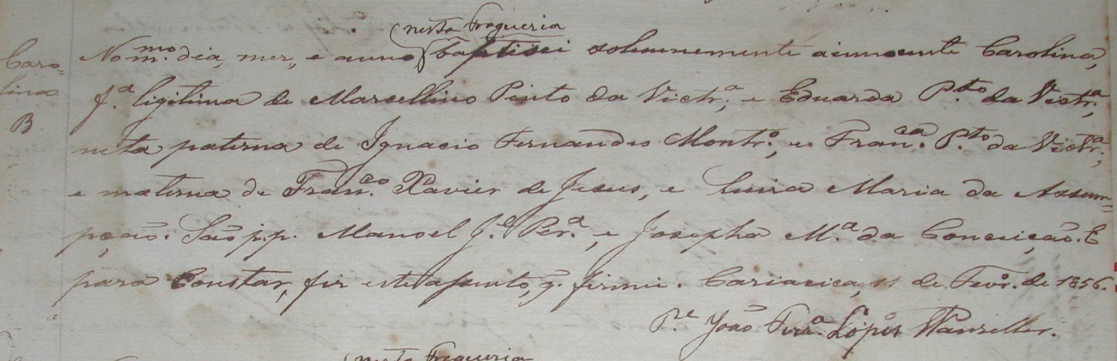 nesta Fregueria
Caro=
lina
B
No m.mo dia, mez, e anno baptisei solemnemente a innocente Carolina,
f.ª legitima de Marcellino Pinto da Victr.ª, e Eduarda P.to da Victr.ª,
neta paterna de Ignacio Fernandes Montr.º, e Fran.ca P.to da Victr.ª,
e materna de Fran.co Xavier de Jesus, e Luiza Maria da Assum
pção. São p.p. Manoel J.e Per.ª, e Josepha M.ª da Conceição. E
para Constar, fiz este assento, q. firmei. Cariacica, 11 de Fevr. de 1856.
P.e João Ferr.ª Lopes Wanzeller.
nesta Fregueria